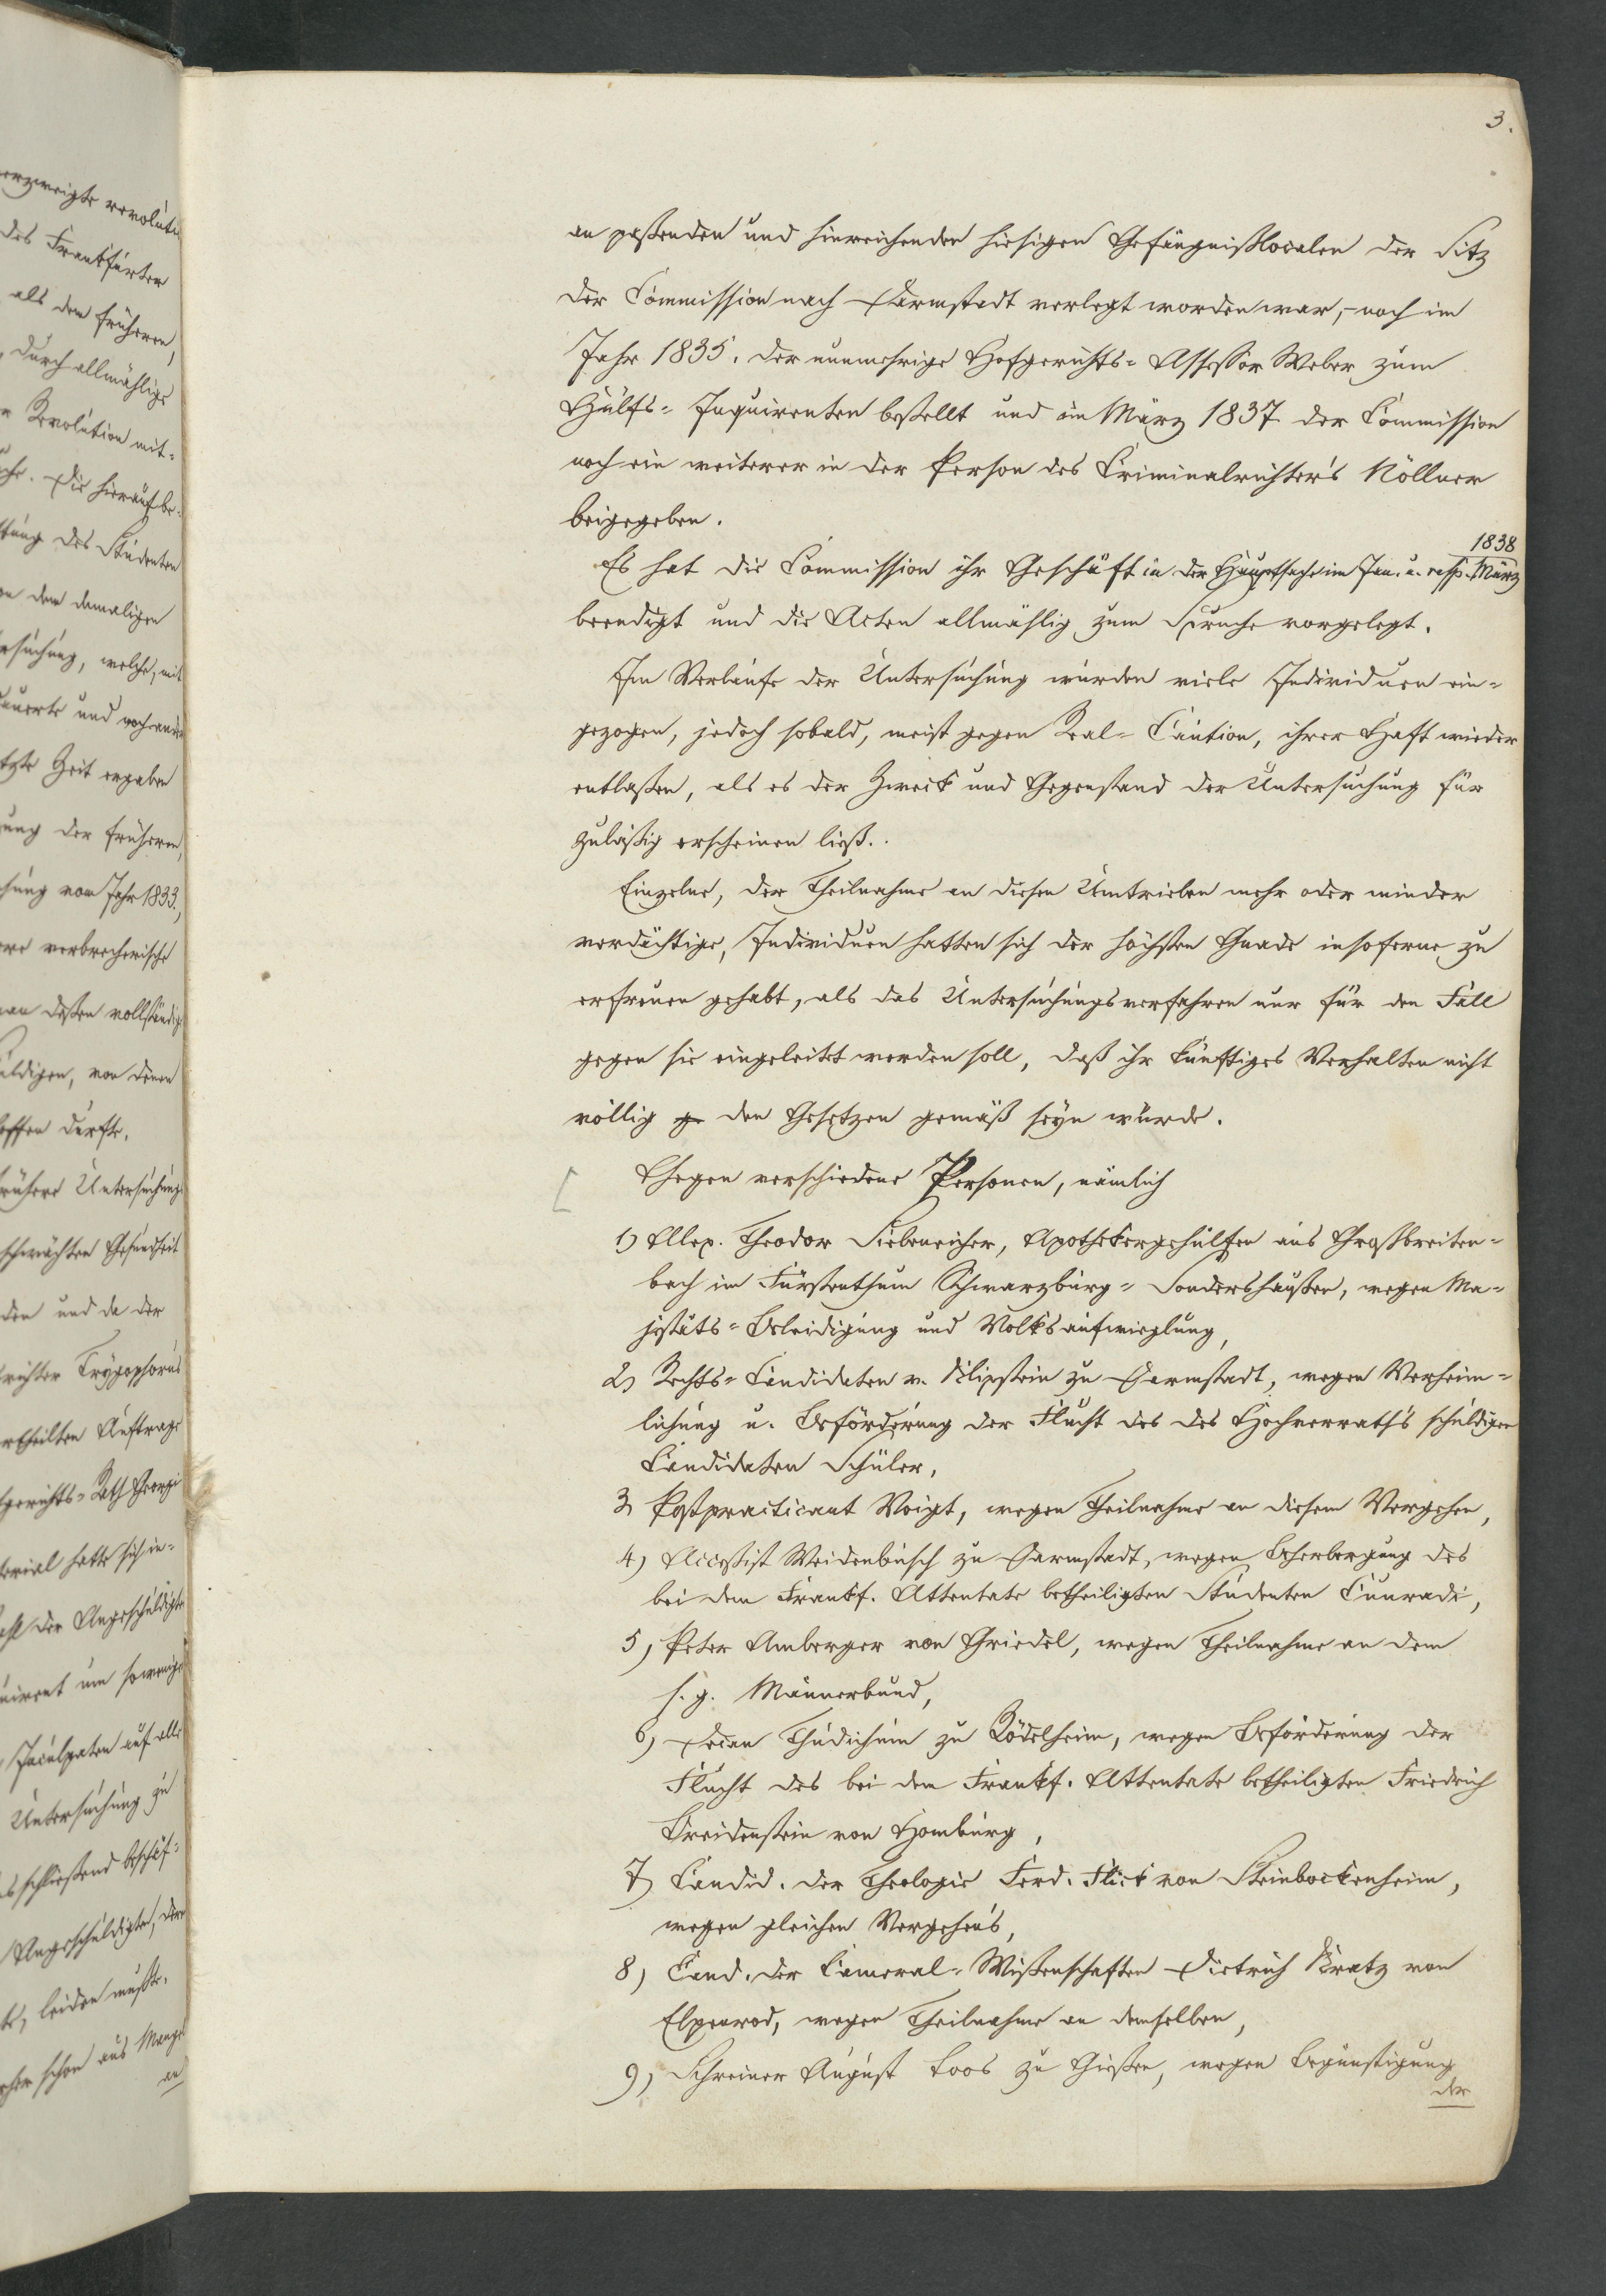 3.
an paßenden und hinreichenden hiesigen Gefängnißlocalen der Sitz
der Commission nach Darmstadt verlegt worden war, – noch im
Jahr 1835. der nunmehrige Hofgerichts-Assessor Weber zum
Hülfs-Inquirenten bestellt und im März 1837 der Commission
noch ein weiterer in der Person des Criminalrichter's Nöllner
beigegeben.
1838
Es hat die Commission ihr Geschäft in der Hauptsache im Jan. u. resp. März
beendigt und die Acten allmählig zum Spruche vorgelegt.
Im Verlaufe der Untersuchung wurden viele Individuen ein-
gezogen, jedoch sobald, meist gegen Real-Caution, ihrer Haft wieder
entlaßen, als es der Zweck und Gegenstand der Untersuchung für
zuläßig erscheinen ließ.
Einzelne, der Theilnahme an diesen Umtrieben mehr oder minder
verdächtige, Individuen hatten sich der höchsten Gnade insoferne zu
erfreuen gehabt, als das Untersuchungsverfahren nur für den Fall
gegen sie eingeleitet werden soll, daß ihr künftiges Verhalten nicht
völlig ge den Gesetzen gemäß seyn würde.
[ Gegen verschiedene Personen, nämlich
1) Alex. Theodor Siebeneicher, Apothekergehülfen aus Großbreiten-
bach im Fürstenthum Schwarzburg-Sondershaußen, wegen Ma-
jestäts-Beleidigung und Volksaufwieglung,
2) Rechts-Candidaten v. Klipstein zu Darmstadt, wegen Verheim-
lichung u. Beförderung der Flucht des des Hochverrath's schuldigen
Candidaten Schüler,
3) Postpracticant Voigt, wegen Theilnahme an diesem Vergehen,
4) Acceßist Weidenbusch zu Darmstadt, wegen Beherbergung des
bei dem Frankf. Attentate betheiligten Studenten Cunradi,
5) Peter Amberger von Griedel, wegen Theilnahme an dem
s. g. Männerbund,
6) Decan Thudichum zu Rödelheim, wegen Beförderung der
Flucht des bei dem Frankf. Attentate betheiligten Friedrich
Breidenstein von Homburg,
7) Candid. der Theologie Ferd. Flick von Steinbockenheim,
wegen gleichen Vergehen's,
8) Cand. der Cameral-Wißenschaften Dietrich Kratz von
Elpenrod, wegen Theilnahme an demselben,
9) Schreiner August Loos zu Gießen, wegen Begünstigung
der